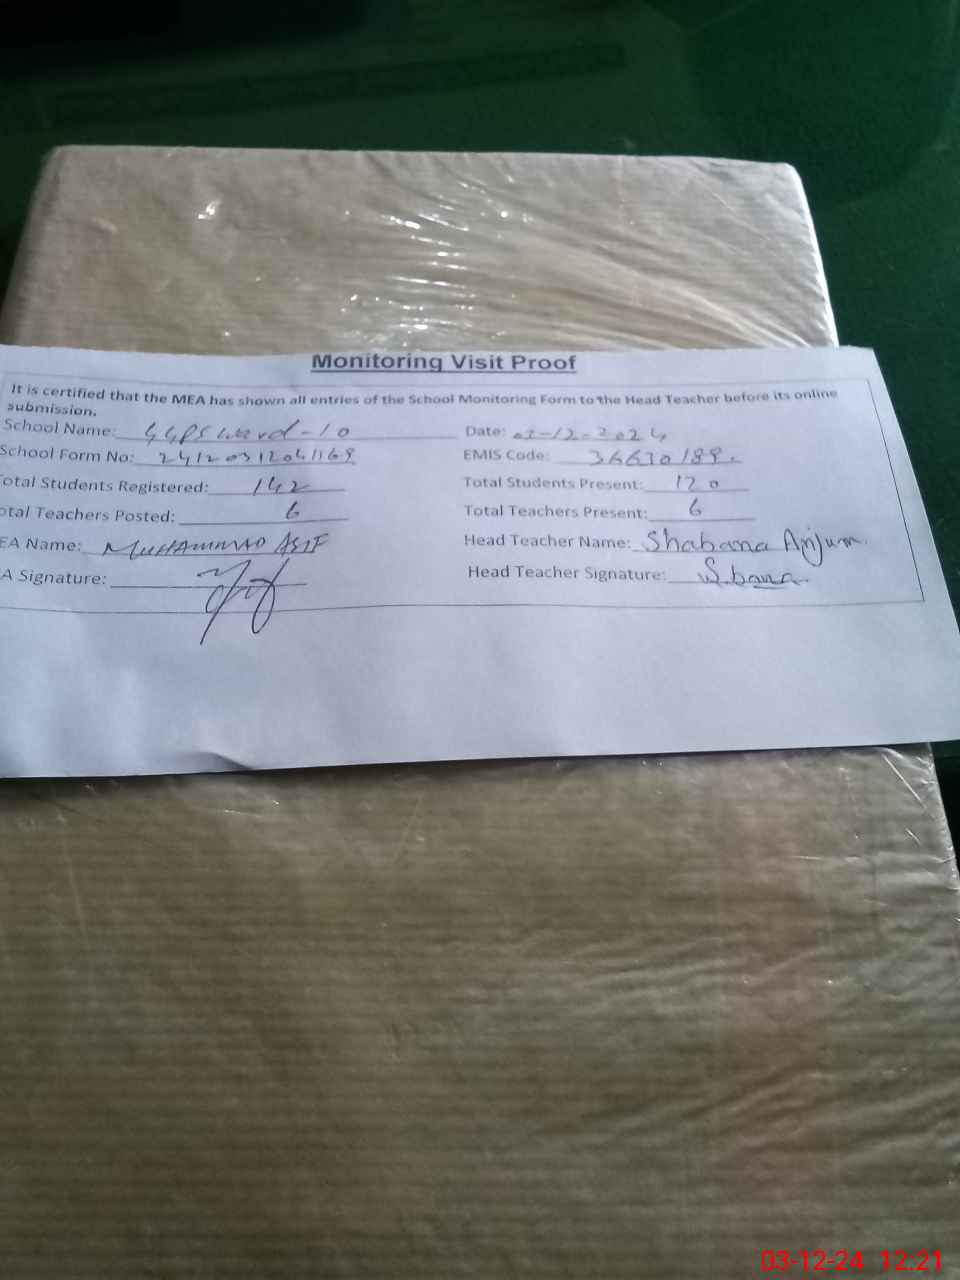 Monitoring Visit Proof
It is certified that the MEA has shown all entries of the School Monitoring Form to the Head Teacher before its online
submission.
School Name: GGPS Ward-10 Date: 03-12-2024
School Form No: 24120312041169 EMIS Code: 36630189
Total Students Registered: 142 Total Students Present: 120
otal Teachers Posted: 6 Total Teachers Present: 6
EA Name: MUHAMMAD ASIF Head Teacher Name: Shabana Anjum.
A Signature: Head Teacher Signature: S.bana
03-12-24 12:21